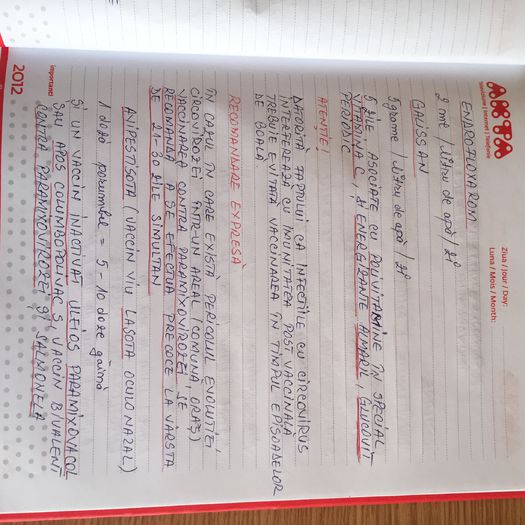 Ziua / Jour / Day:
Luna / Mois / Month:
televiziune | internet | telefonie
ENROFLOXAROM
2 ml / litru de apă / zi
GALISSAN
5 grame / litru de apă / zi
5 ZILE, ASOCIATE CU POLIVITAMINE ÎN SPECIAL
VITAMINA C, ȘI ENERGIZANTE AIMARE, GLUCOVIT
PERIODIC
ATENȚIE!
DATORITĂ FAPTULUI CĂ INFECȚIILE CU CIRCOVIRUS
INTERFEREAZĂ CU IMUNITATEA POST VACCINALĂ
TREBUIE EVITATĂ VACCINAREA ÎN TIMPUL EPISOADELOR
DE BOALĂ.
RECOMANDARE EXPRESĂ
ÎN CAZUL ÎN CARE EXISTĂ PERICOLUL EVOLUȚIEI
CIRCOVIROZEI ÎNTR-UN AREAL (COMUNA, ORAȘ)
VACCINAREA CONTRA PARAMIXOVIROZEI SE
RECOMANDĂ A SE EFECTUA PRECOCE LA VÂRSTA
DE 21-30 ZILE SIMULTAN
AVIPESTISOTA (VACCIN VIU LASOTA OCULONAZAL)
1 doză porumbel = 5-10 doze găină
ȘI UN VACCIN INACTIVAT ULEIOS PARAMIXOVACOL
SAU APOS COLUMBOPOLIVAC SI, VACCIN BIVALENT
CONTRA PARAMIXOVIROZEI ȘI SALMONELA
important!
2012